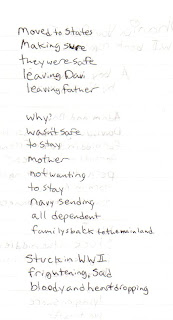 moved to States
Making sure
they were safe
leaving Dad
leaving father
why?
wasn't safe
to stay
mother
not wanting
to stay
navy sending
all dependent
familys back to the mainland
Stuck in WWII
frightening, Said
bloody and heart dropping